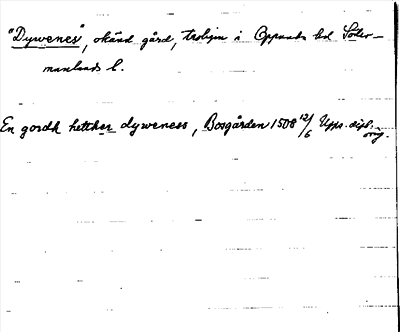 "Dywenes", okänd gård, troligen i Oppunda hd Söder-
manlands l.
En gordh hetther dyweness, Bosgården 1508 12/6 Upps. dipl.
orig.